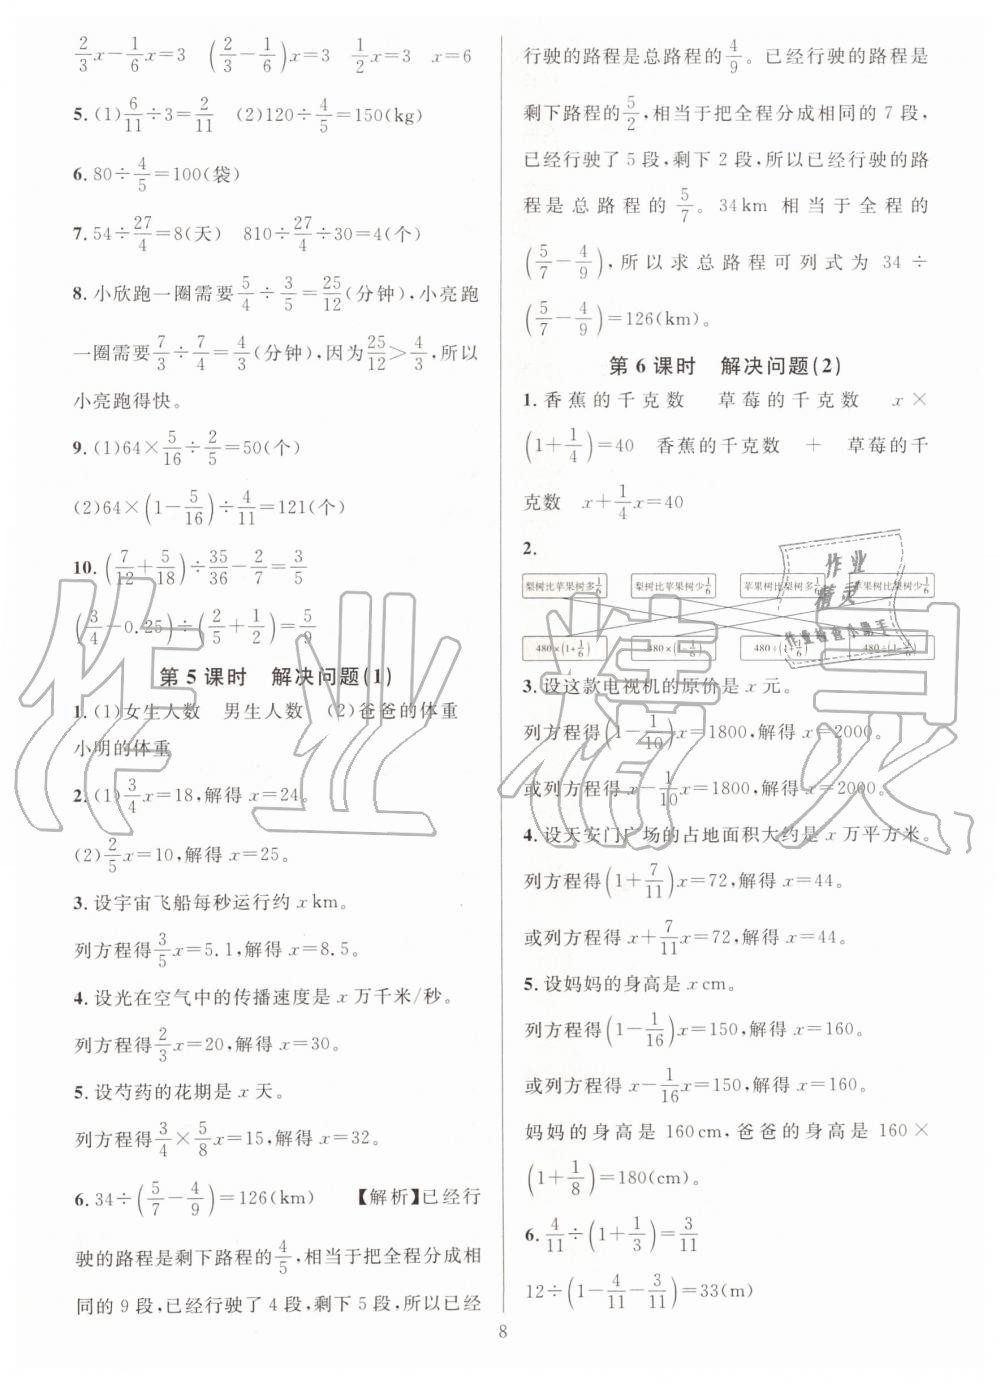 2/3x-1/6x=3 (2/3-1/6)x=3 1/2x=3 x=6
5. (1)6/11÷3=2/11 (2)120÷4/5=150(kg)
6. 80÷4/5=100(袋)
7. 54÷27/4=8(天) 810÷27/4÷30=4(个)
8. 小欣跑一圈需要5/4÷3/5=25/12(分钟),小亮跑
一圈需要7/3÷7/4=4/3(分钟),因为25/12>4/3,所以
小亮跑得快。
9. (1)64×5/16÷2/5=50(个)
(2)64×(1-5/16)÷4/11=121(个)
10. (7/12+5/18)÷35/36-2/7=3/5
(3/4-0.25)÷(2/5+1/2)=5/9
第5课时 解决问题(1)
1. (1)女生人数 男生人数 (2)爸爸的体重
小明的体重
2. (1)3/4x=18,解得 x=24。
(2)2/5x=10,解得 x=25。
3. 设宇宙飞船每秒运行约 x km。
列方程得3/5x=5.1,解得 x=8.5。
4. 设光在空气中的传播速度是 x 万千米/秒。
列方程得2/3x=20,解得 x=30。
5. 设芍药的花期是 x 天。
列方程得3/4×5/8x=15,解得 x=32。
6. 34÷(5/7-4/9)=126(km) 【解析】已经行
驶的路程是剩下路程的4/5,相当于把全程分成相
同的9段,已经行驶了4段,剩下5段,所以已经
行驶的路程是总路程的4/9。已经行驶的路程是
剩下路程的5/2,相当于把全程分成相同的7段,
已经行驶了5段,剩下2段,所以已经行驶的路
程是总路程的5/7。34km 相当于全程的
(5/7-4/9),所以求总路程可列式为 34÷
(5/7-4/9)=126(km)。
第6课时 解决问题(2)
1. 香蕉的千克数 草莓的千克数 x×
(1+1/4)=40 香蕉的千克数 + 草莓的千
克数 x+1/4x=40
2.
梨树比苹果树多1/6 梨树比苹果树少1/6 苹果树比梨树多1/6 苹果树比梨树少1/6
480×(1+1/6) 480×(1-1/6) 480÷(1+1/6) 480÷(1-1/6)
3. 设这款电视机的原价是 x 元。
列方程得(1-1/10)x=1800,解得 x=2000。
或列方程得 x-1/10x=1800,解得 x=2000。
4. 设天安门广场的占地面积大约是 x 万平方米。
列方程得(1+7/11)x=72,解得 x=44。
或列方程得 x+7/11x=72,解得 x=44。
5. 设妈妈的身高是 x cm。
列方程得(1-1/16)x=150,解得 x=160。
或列方程得 x-1/16x=150,解得 x=160。
妈妈的身高是 160cm,爸爸的身高是 160×
(1+1/8)=180(cm)。
6. 4/11÷(1+1/3)=3/11
12÷(1-4/11-3/11)=33(m)
8
作业精灵
作业
精灵
作业检查小帮手